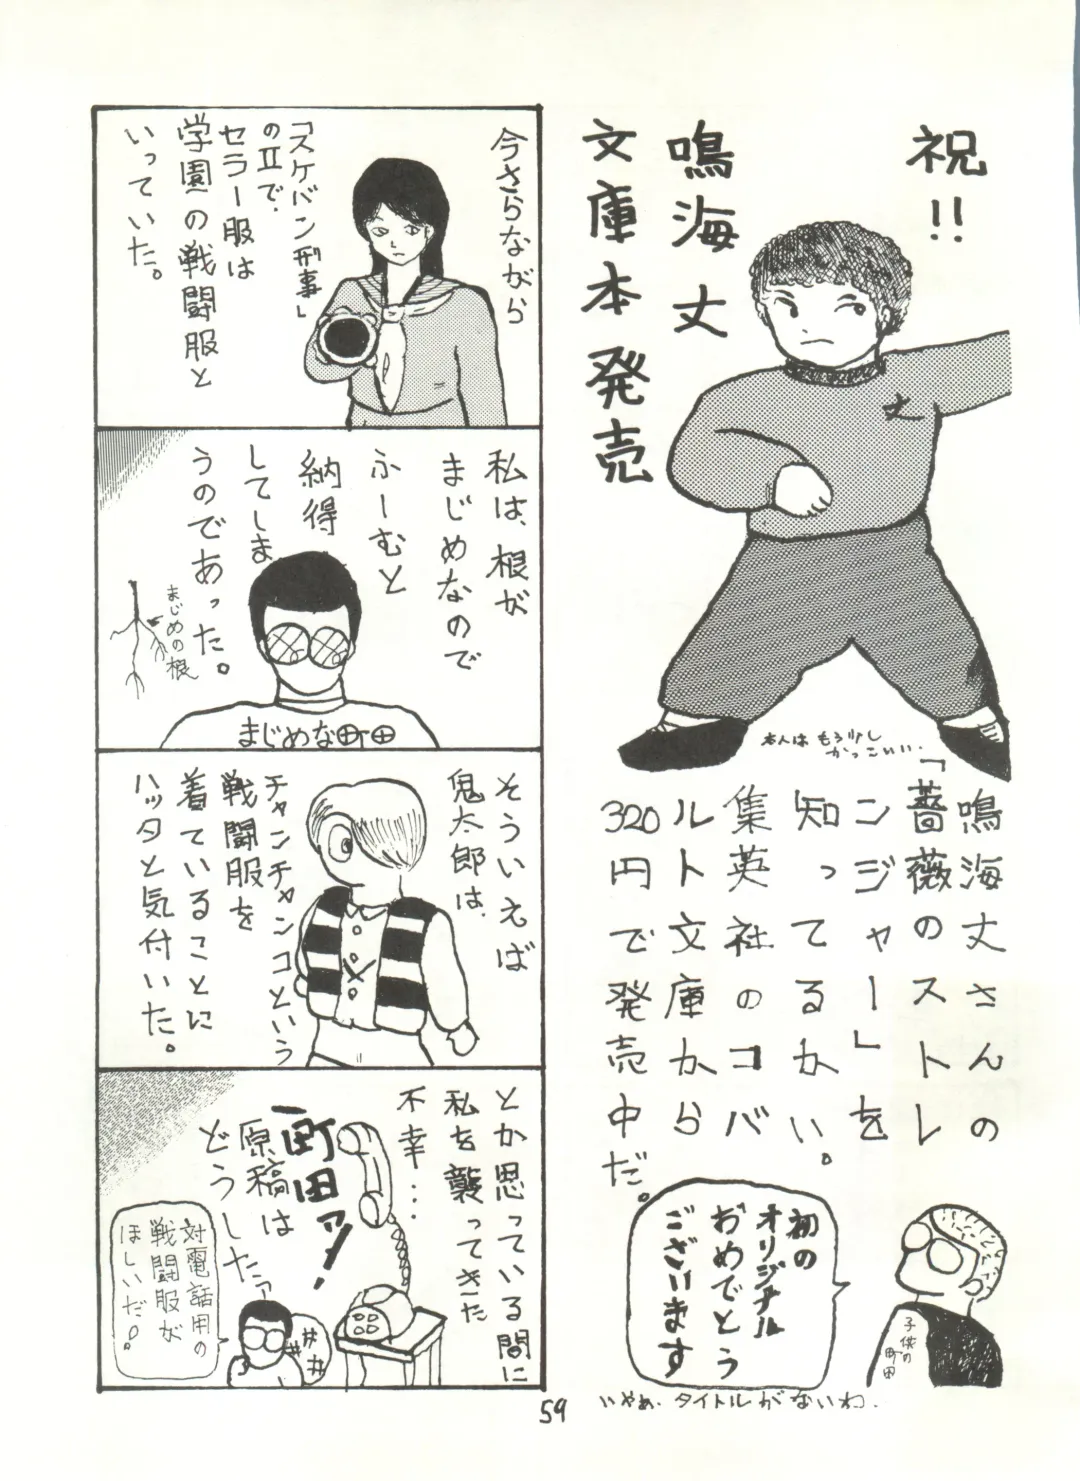 祝!!
鳴海丈
文庫本発売
丈
本人はもう少し
かっこいい.
鳴海丈さんの
「薔薇のストレ
ンジャー」を
知ってるかい。
集英社のコバ
ルト文庫から
320円で発売中だ。
初の
オリジナル
おめでとう
ございます
子供の
町田
いやぁ.タイトルがないわ.
今さらながら
「スケバン刑事」
のIIで.
セラー服は
学園の戦闘服と
いっていた。
私は、根が
まじめなので
ふーむと
納得
してしま
うのであった。
まじめの根
まじめな町田
そういえば
鬼太郎は、
チャンチャンコという
戦闘服を
着ていることに
ハッタと気付いた。
とか思っている間に
私を襲ってきた
不幸…
町田ァ!
原稿は
どうしたァ
対電話用の
戦闘服が
ほしいだ。
59